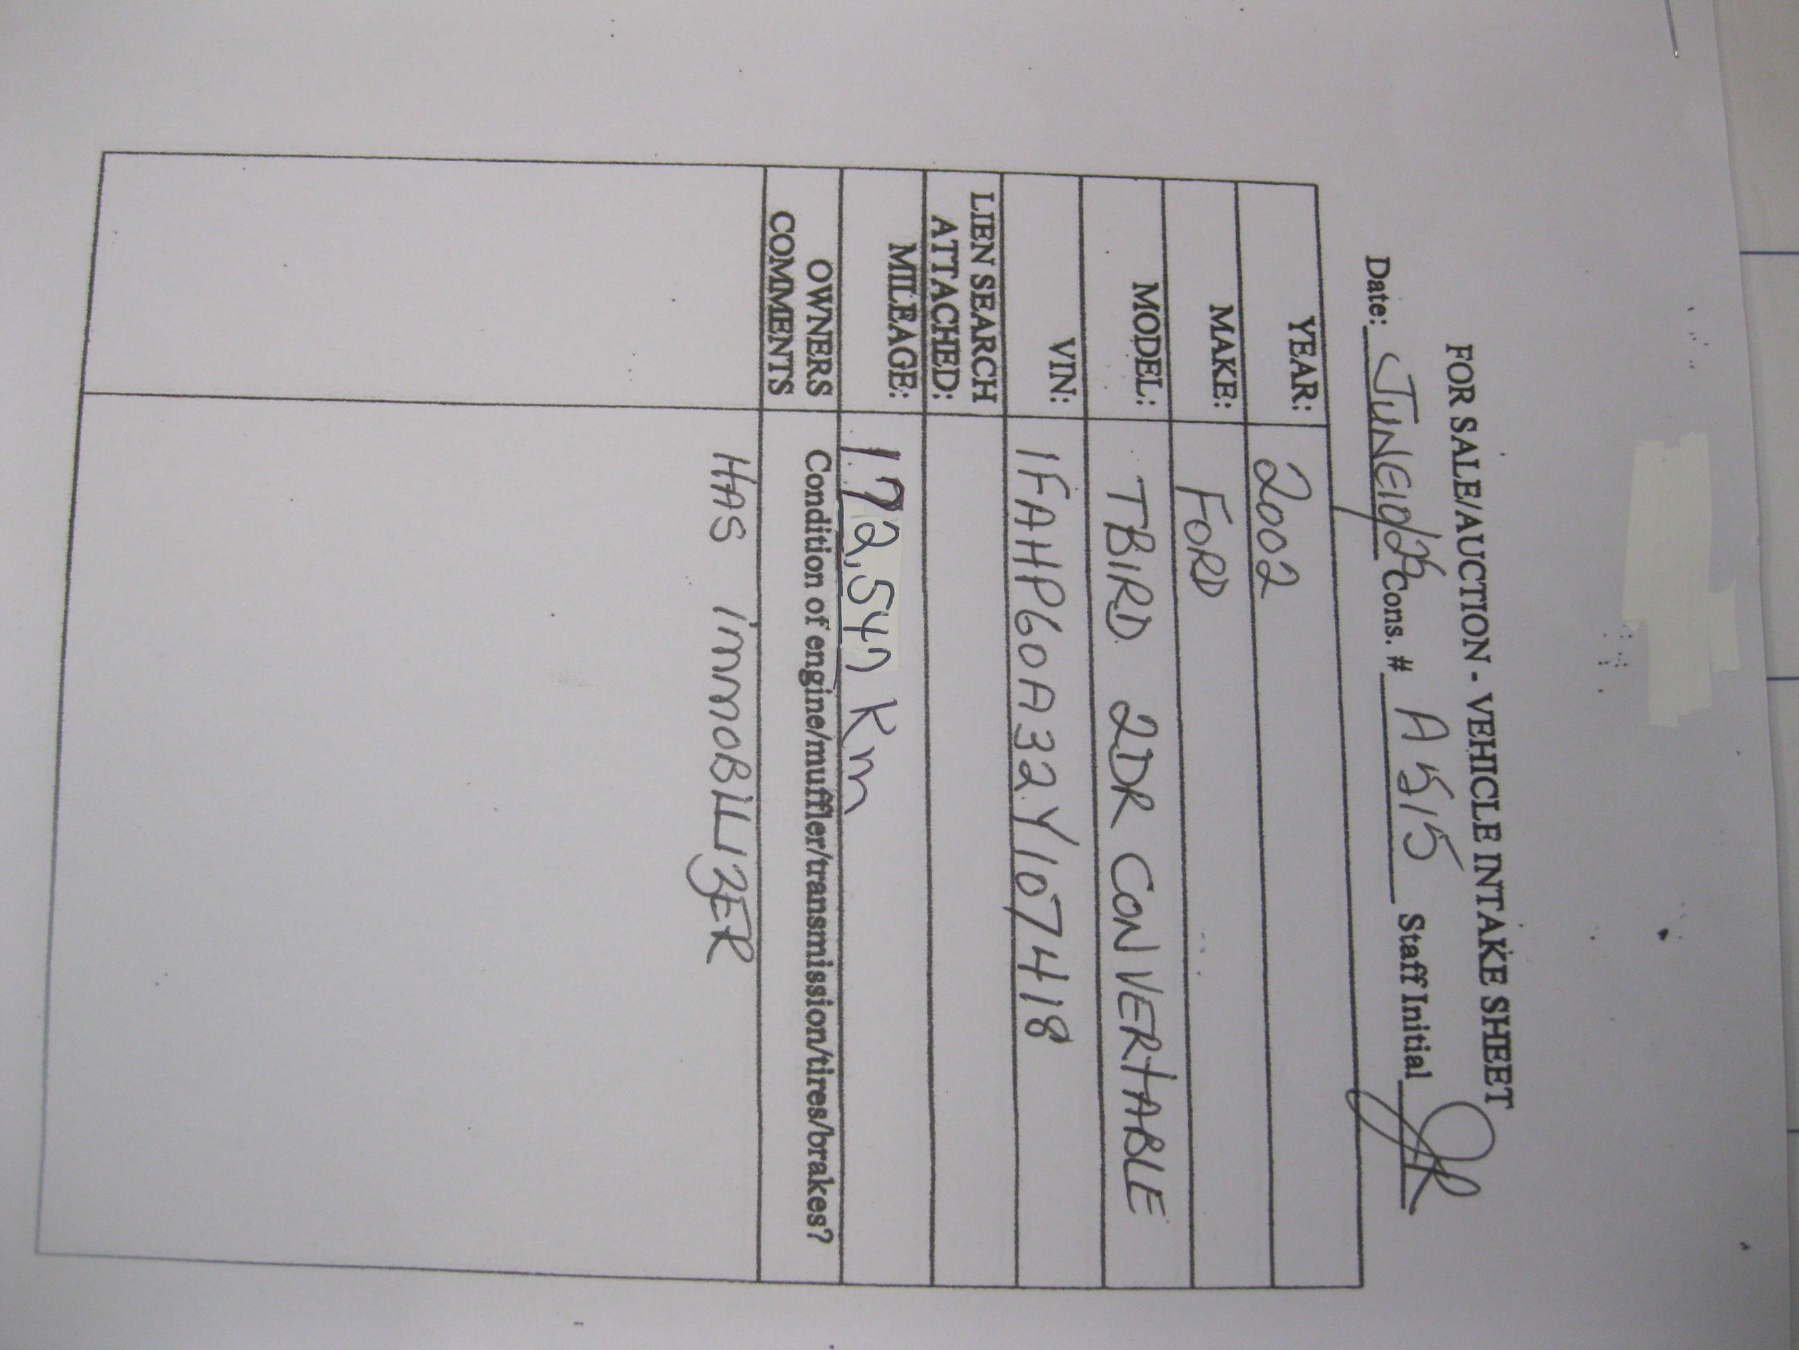 FOR SALE/AUCTION - VEHICLE INTAKE SHEET
Date: JUNE 10/25 Cons. # A 515 Staff Initial JR
YEAR: 2002
MAKE: FORD
MODEL: TBIRD 2DR CONVERTABLE
VIN: 1FAHP60A32Y107418
LIEN SEARCH
ATTACHED:
MILEAGE: 172,547 Km
OWNERS Condition of engine/muffler/transmission/tires/brakes?
COMMENTS
HAS immOBILIZER